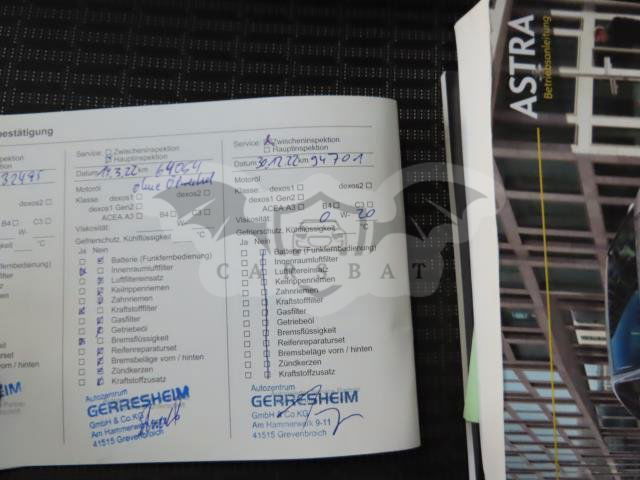 bestätigung
32495
Service: Zwischeninspektion
Hauptinspektion
Datum 14.3.22 km 64264
Motoröl ohne Ölwechsel
Klasse: dexos1 dexos2
dexos1 Gen2
ACEA A3 B4 C3
Viskosität W- °C
Gefrierschutz, Kühlflüssigkeit
Ja Nein
Batterie (Funkfernbedienung)
Innenraumluftfilter
Luftfiltereinsatz
Keilrippenriemen
Zahnriemen
Kraftstofffilter
Gasfilter
Getriebeöl
Bremsflüssigkeit
Reifenreparaturset
Bremsbeläge vorn / hinten
Zündkerzen
Kraftstoffzusatz
Autozentrum
GERRESHEIM
GmbH & Co.KG
Am Hammerwerk 9-11
41515 Grevenbroich
Service: Zwischeninspektion
Hauptinspektion
Datum 30.12.22 km 94701
Motoröl
Klasse: dexos1 dexos2
dexos1 Gen2
ACEA A3 B4 C3
Viskosität 0 W- 20
Gefrierschutz, Kühlflüssigkeit °C
Ja Nein
Batterie (Funkfernbedienung)
Innenraumluftfilter
Luftfiltereinsatz
Keilrippenriemen
Zahnriemen
Kraftstofffilter
Gasfilter
Getriebeöl
Bremsflüssigkeit
Reifenreparaturset
Bremsbeläge vorn / hinten
Zündkerzen
Kraftstoffzusatz
Autozentrum
GERRESHEIM
GmbH & Co.KG
Am Hammerwerk 9-11
41515 Grevenbroich
ASTRA
Betriebsanleitung
CARYBAT